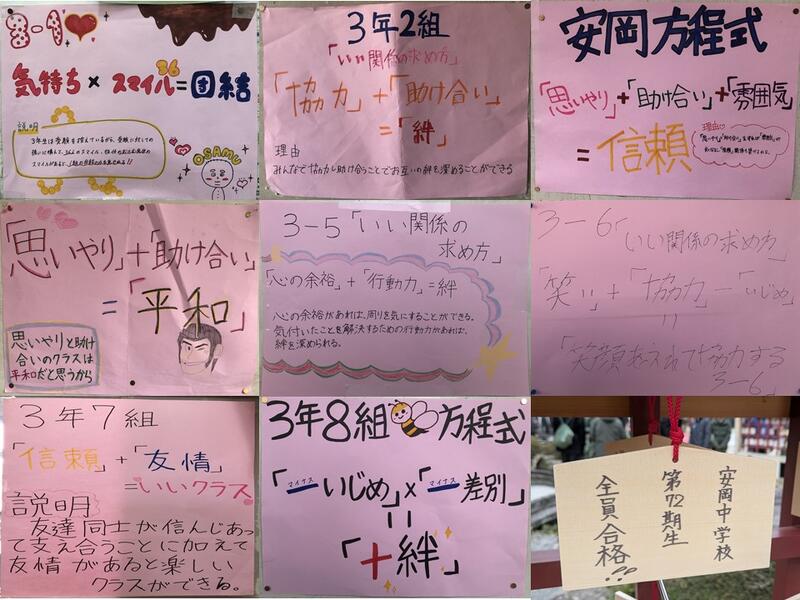 3-1
気持ち × スマイル36=団結
説明
3年生は受験を控えているが、受験に対しての
OSAMU
3年2組
「いい関係の求め方」
「協力」+「助け合い」
=「絆」
理由
みんなで協力し助け合うことでお互いの絆を深めることができる
安岡方程式
「思いやり」+「助け合い」+「雰囲気」
=信頼
理由
「思いやり」+「助け合い」
=「平和」
思いやりと助け
合いのクラスは
平和だと思うから
3-5「いい関係の
求め方」
「心の余裕」+「行動力」=絆
心の余裕があれば、周りを気にすることができる。
気付いたことを解決するための行動力があれば、
絆を深められる。
3-6「いい関係の求め方」
「笑い」+「協力」-「いじめ」
=
「笑顔たえれて協力する
3-6」
3年7組
「信頼」+「友情」
=いいクラス
説明
友達同士が信んじあっ
て支え合うことに加えて
友情があると楽しい
クラスができる。
3年8組方程式
「マイナス
ーいじめ」×「マイナス
ー差別」
=
「+絆」
安岡中学校
第72期生
全員合格!!!